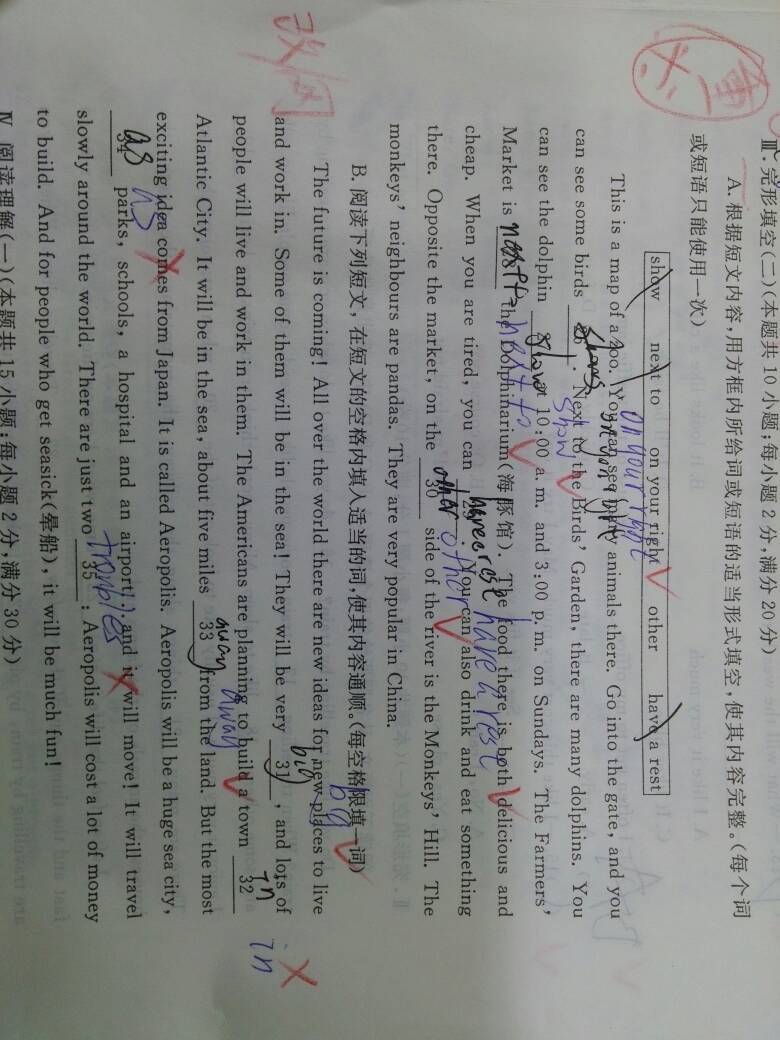 Ⅲ. 完形填空(二)(本题共 10 小题;每小题 2 分,满分 20 分)
A. 根据短文内容,用方框内所给词或短语的适当形式填空,使其内容完整。(每个词
或短语只能使用一次)
show next to on your right other have a rest
on your right
This is a map of a zoo. You can see many animals there. Go into the gate, and you
can see some birds . Next to the Birds' Garden, there are many dolphins. You
show
can see the dolphin show 10:00 a. m. and 3:00 p. m. on Sundays. The Farmers'
Market is next to the Dolphinarium(海豚馆). The food there is both delicious and
next to
have a rest
cheap. When you are tired, you can 29 . You can also drink and eat something
there. Opposite the market, on the other 30 side of the river is the Monkeys' Hill. The
other
monkeys' neighbours are pandas. They are very popular in China.
B. 阅读下列短文,在短文的空格内填入适当的词,使其内容通顺。(每空格限填一词)
The future is coming! All over the world there are new ideas for new places to live
big big
and work in. Some of them will be in the sea! They will be very 31 , and lots of
改问
people will live and work in them. The Americans are planning to build a town in 32
in
away
Atlantic City. It will be in the sea, about five miles away 33 from the land. But the most
exciting idea comes from Japan. It is called Aeropolis. Aeropolis will be a huge sea city,
as 34 parks, schools, a hospital and an airport, and it will move! It will travel
as
slowly around the world. There are just two 35 : Aeropolis will cost a lot of money
troubles
to build. And for people who get seasick(晕船), it will be much fun!
Ⅳ 阅读理解(一)(本题共 15 小题;每小题 2 分,满分 30 分)